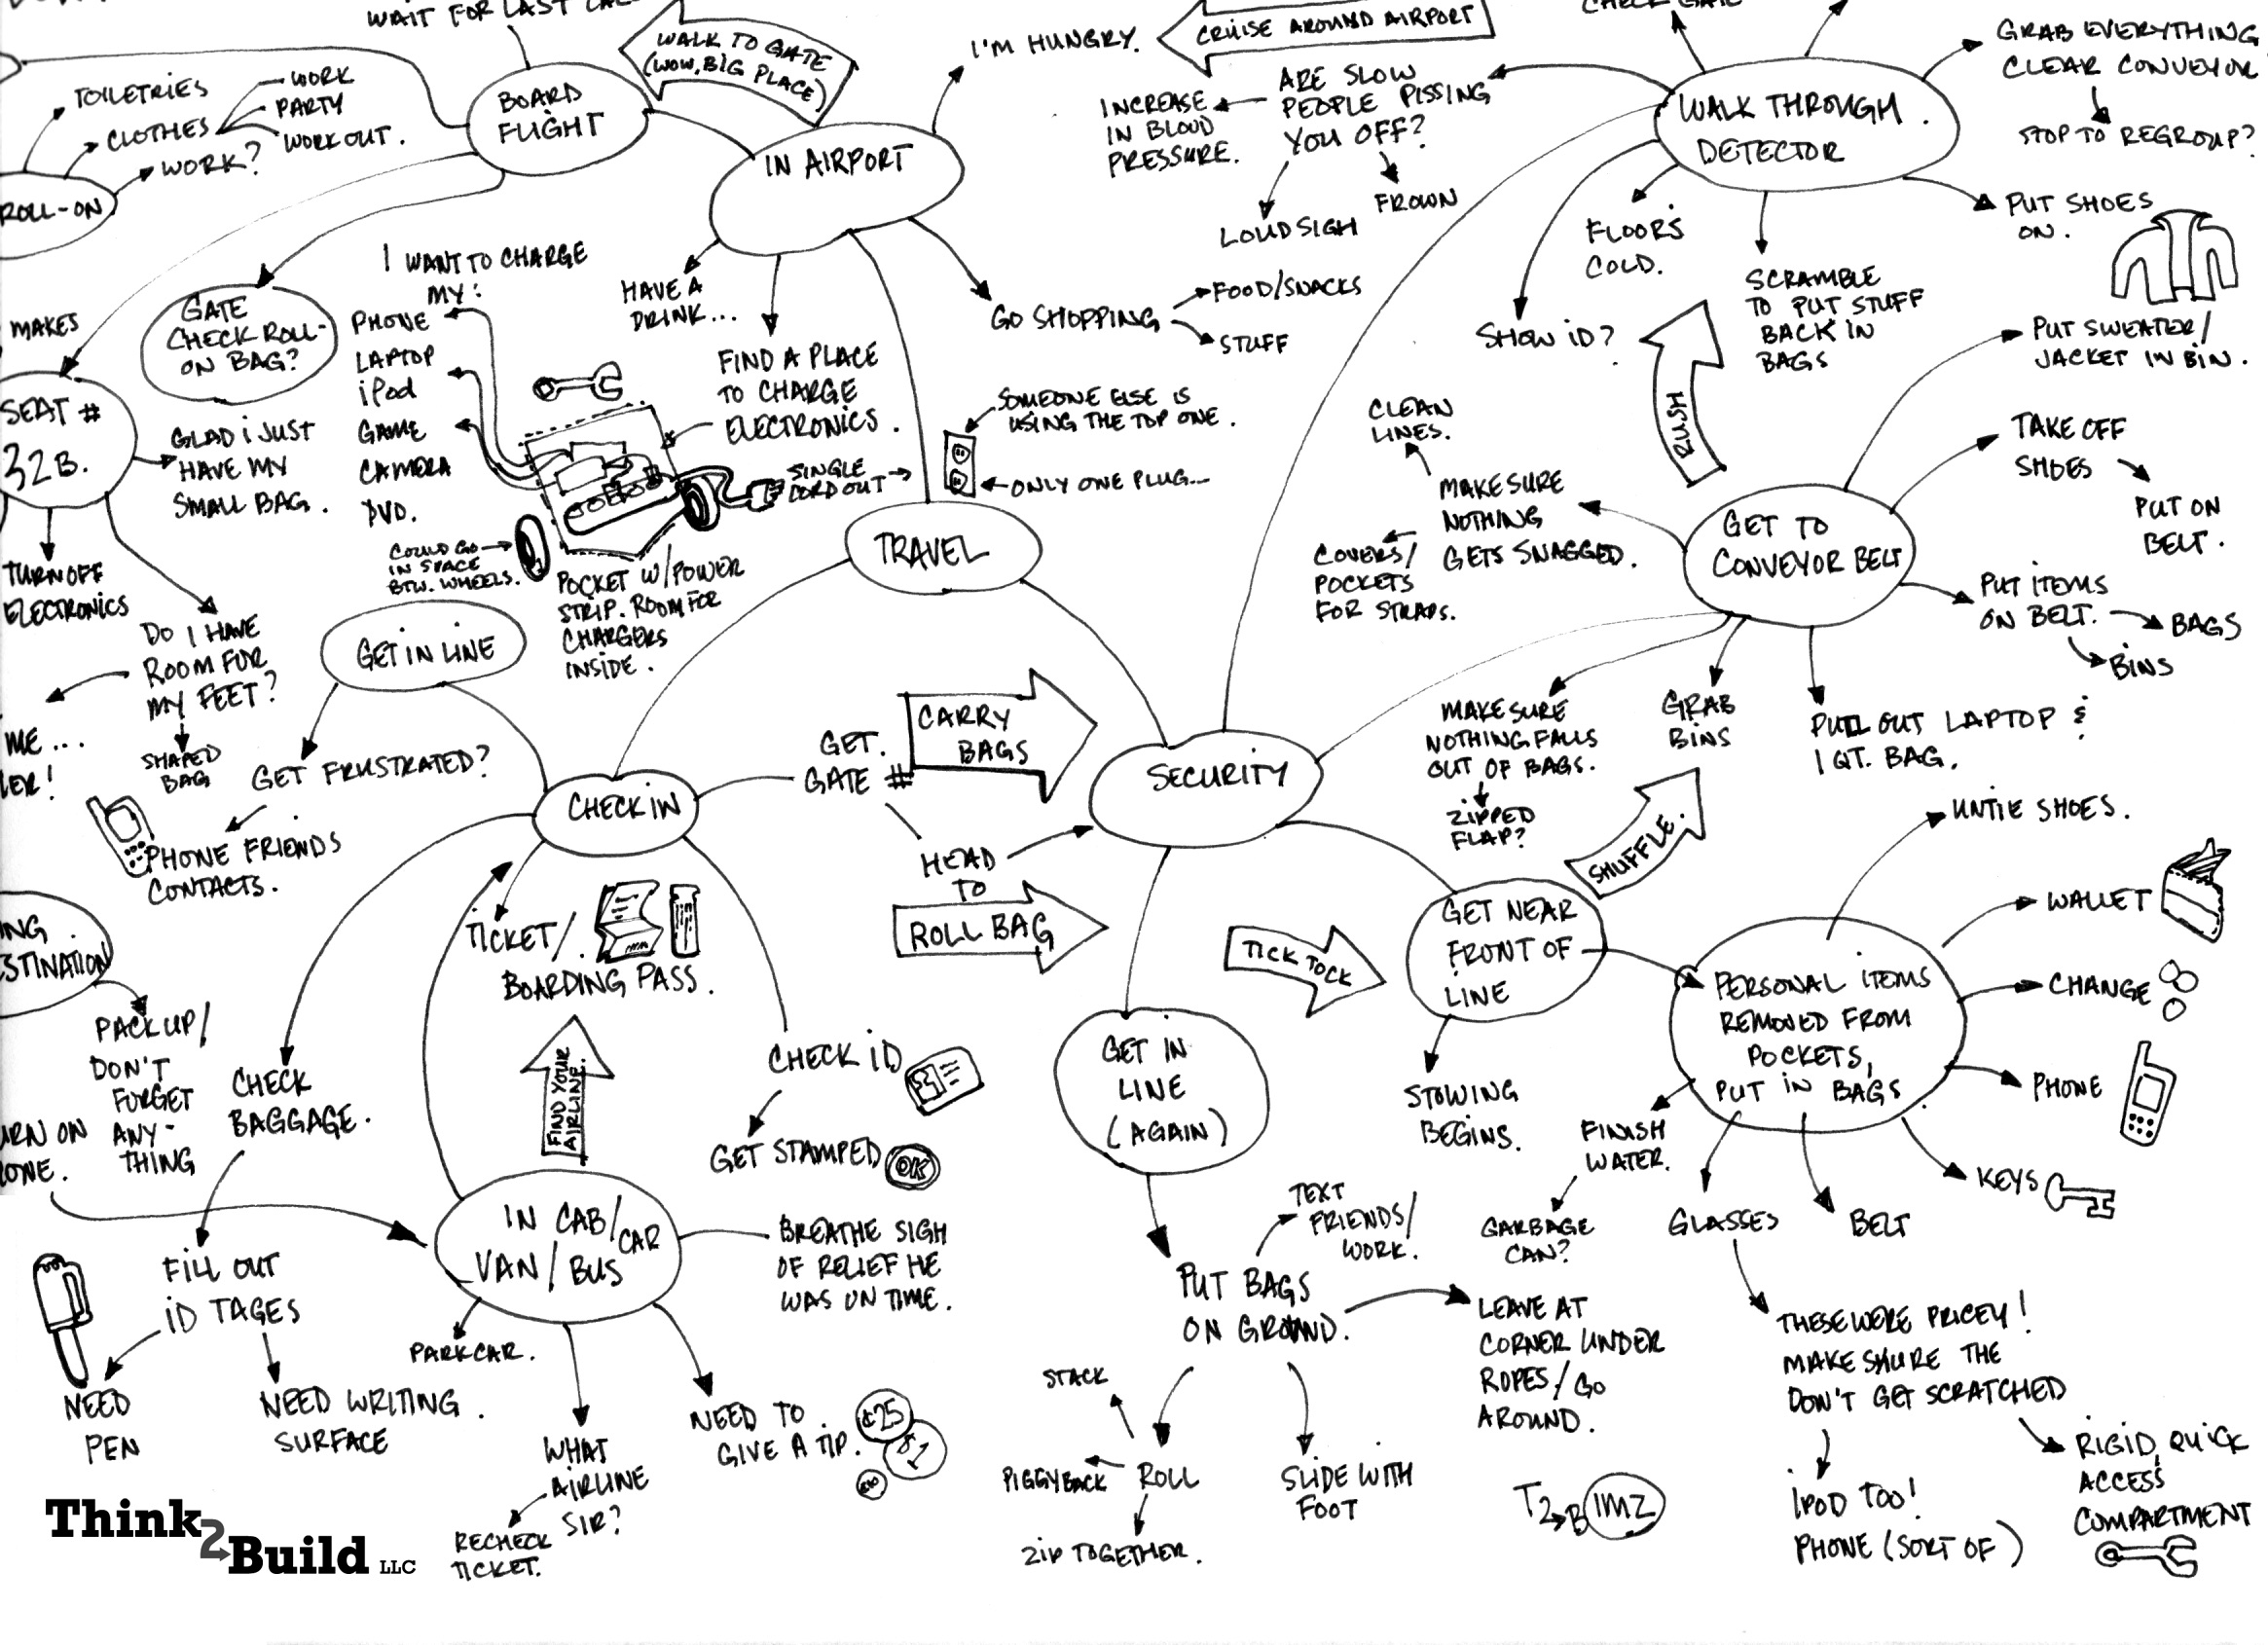 WAIT FOR LAST
WALK TO GATE
(WOW, BIG PLACE)
I'M HUNGRY.
CRUISE AROUND AIRPORT
CHECK GATE
GRAB EVERYTHING
CLEAR CONVEYOR
STOP TO REGROUP?
TOILETRIES
CLOTHES
WORK
PARTY
WORK OUT.
WORK?
ROLL-ON
BOARD
FLIGHT
IN AIRPORT
INCREASE
IN BLOOD
PRESSURE.
ARE SLOW
PEOPLE PISSING
YOU OFF?
LOUD SIGH
FROWN
WALK THROUGH
DETECTOR
FLOORS
COLD.
SHOW ID?
SCRAMBLE
TO PUT STUFF
BACK IN
BAGS
PUT SHOES
ON.
PUT SWEATER/
JACKET IN BIN.
MAKES
GATE
CHECK ROLL-
ON BAG?
I WANT TO CHARGE
MY:
PHONE
LAPTOP
iPod
GAME
CAMERA
DVD.
HAVE A
DRINK...
FIND A PLACE
TO CHARGE
ELECTRONICS.
GO SHOPPING
FOOD/SNACKS
STUFF
SOMEONE ELSE IS
USING THE TOP ONE.
ONLY ONE PLUG...
SINGLE
CORD OUT
COULD GO
IN SPACE
BTW. WHEELS.
POCKET W/POWER
STRIP. ROOM FOR
CHARGERS
INSIDE.
SEAT #
32B.
GLAD I JUST
HAVE MY
SMALL BAG.
TURN OFF
ELECTRONICS
DO I HAVE
ROOM FOR
MY FEET?
SHAPED
BAG
ME...
LER!
TRAVEL
RUSH
CLEAN
LINES.
MAKE SURE
NOTHING
GETS SNAGGED.
COVERS/
POCKETS
FOR STRAPS.
GET TO
CONVEYOR BELT
TAKE OFF
SHOES
PUT ON
BELT.
PUT ITEMS
ON BELT.
BAGS
BINS
MAKE SURE
NOTHING FALLS
OUT OF BAGS.
ZIPPED
FLAP?
GRAB
BINS
PULL OUT LAPTOP &
1 QT. BAG.
GET IN LINE
GET FRUSTRATED?
PHONE FRIENDS
CONTACTS.
CHECK IN
GET
GATE #
CARRY
BAGS
HEAD
TO
ROLL BAG
SECURITY
TICK TOCK
GET NEAR
FRONT OF
LINE
SHUFFLE.
STOWING
BEGINS.
PERSONAL ITEMS
REMOVED FROM
POCKETS,
PUT IN BAGS
UNTIE SHOES.
WALLET
CHANGE
PHONE
KEYS
BELT
GLASSES
FINISH
WATER.
GARBAGE
CAN?
THESE WERE PRICEY!
MAKE SHURE THE
DON'T GET SCRATCHED
IPOD TOO!
PHONE (SORT OF)
RIGID, QUICK
ACCESS
COMPARTMENT
TICKET/
BOARDING PASS.
FIND YOUR
AIRLINE.
CHECK ID
GET STAMPED
OK
ING
ESTINATION
PACK UP/
DON'T
FORGET
ANY-
THING
URN ON
ONE.
CHECK
BAGGAGE.
FILL OUT
ID TAGES
NEED
PEN
NEED WRITING
SURFACE
IN CAB/
CAR
VAN/BUS
BREATHE SIGH
OF RELIEF HE
WAS ON TIME.
PARK CAR.
WHAT
AIRLINE
SIR?
RECHECK
TICKET.
NEED TO
GIVE A TIP.
¢25
$1
GET IN
LINE
(AGAIN)
PUT BAGS
ON GROUND.
TEXT
FRIENDS/
WORK.
LEAVE AT
CORNER UNDER
ROPES/GO
AROUND.
STACK
PIGGYBACK
ROLL
ZIP TOGETHER.
SLIDE WITH
FOOT
T2B IMZ
Think
2
Build LLC